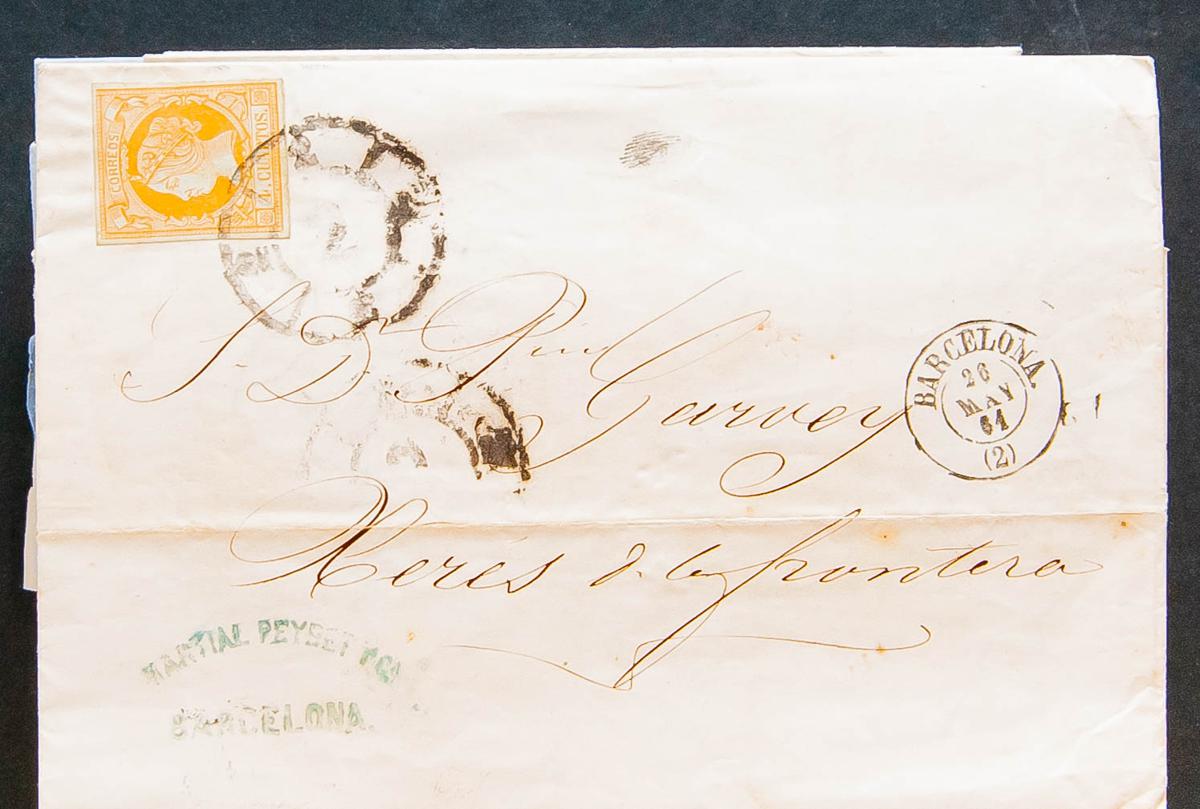 CORREOS
4. CUARTOS.
2
S. Dn. P. Garvey
BARCELONA.
26
MAY
61
(2)
2
Xerés de la frontera
MARTIAL PEYSET Y Ca
BARCELONA.